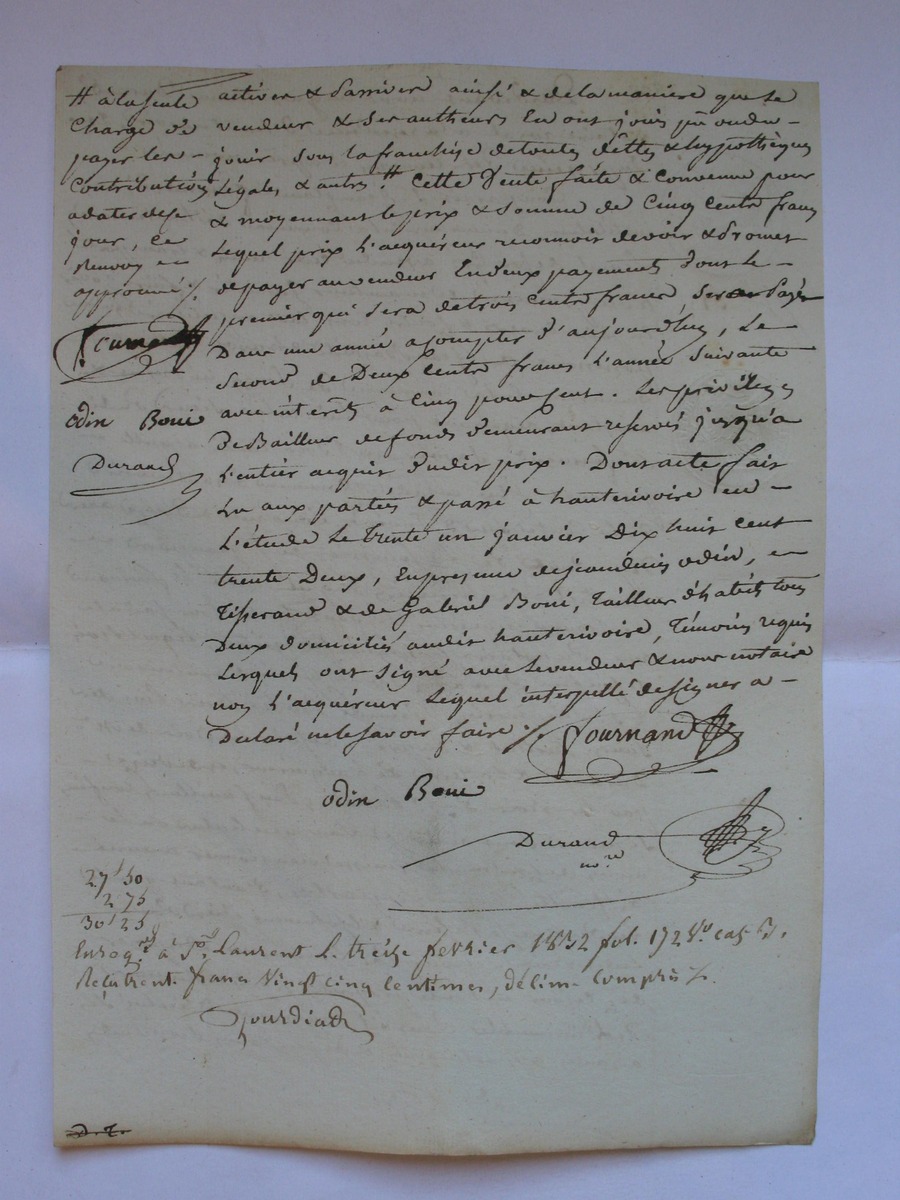 # à la seule
charge de
payer les -
contributions
a dater de ce
jour, ce
Renvoy en
approuvé ./.
Fournand
odin Boni
Durand
actives & passives ainsi & de la manière que le
vendeur & ses autheurs En ont joüis pû ou dû -
joüir sous la franchise de toutes dêttes & hypothèques
Légales & autres # Cette Vente faite & Convenue pour
& moyennant le prix & Somme de Cinq Cents francs
Lequel prix L'acquéreur reconnoit devoir & promet
de payer au vendeur En deux payements dont le -
premier qui sera de trois Cents francs, Sera Payé
Dans une année a compter d'aujourd'huy, Le
Second de Deux Cents francs L'année Suivante
avec intérêts à Cinq pour Cent. Les privilèges
de Bailleur de fonds demeurant reservés jusqu'a
L'entier acquit dudit prix. Dont acte fait
Lu aux parties & passé à hauterivoire en -
L'étude Le trente un janvier Dix huit cent
trente Deux, En presence de jean denis odin, -
Tisserand & de Gabriel Boni, Tailleur d'habits tous
Deux domiciliés audit hauterivoire, Témoins requis
Lesquels ont signé avec Le vendeur & nous notaire
non L'acquéreur Lequel interpellé de signer a -
Declaré ne le savoir faire ./. Fournand
odin Boni
Durand
no.re
27 50
2 75
30 25
Enreg.ré à St. Laurent L. treize fevrier 1832 fol. 172 v.o cas 3.
Reçu trent. francs Vingt cinq Centimes, décime Compris ./.
Jourdiat
D. T.